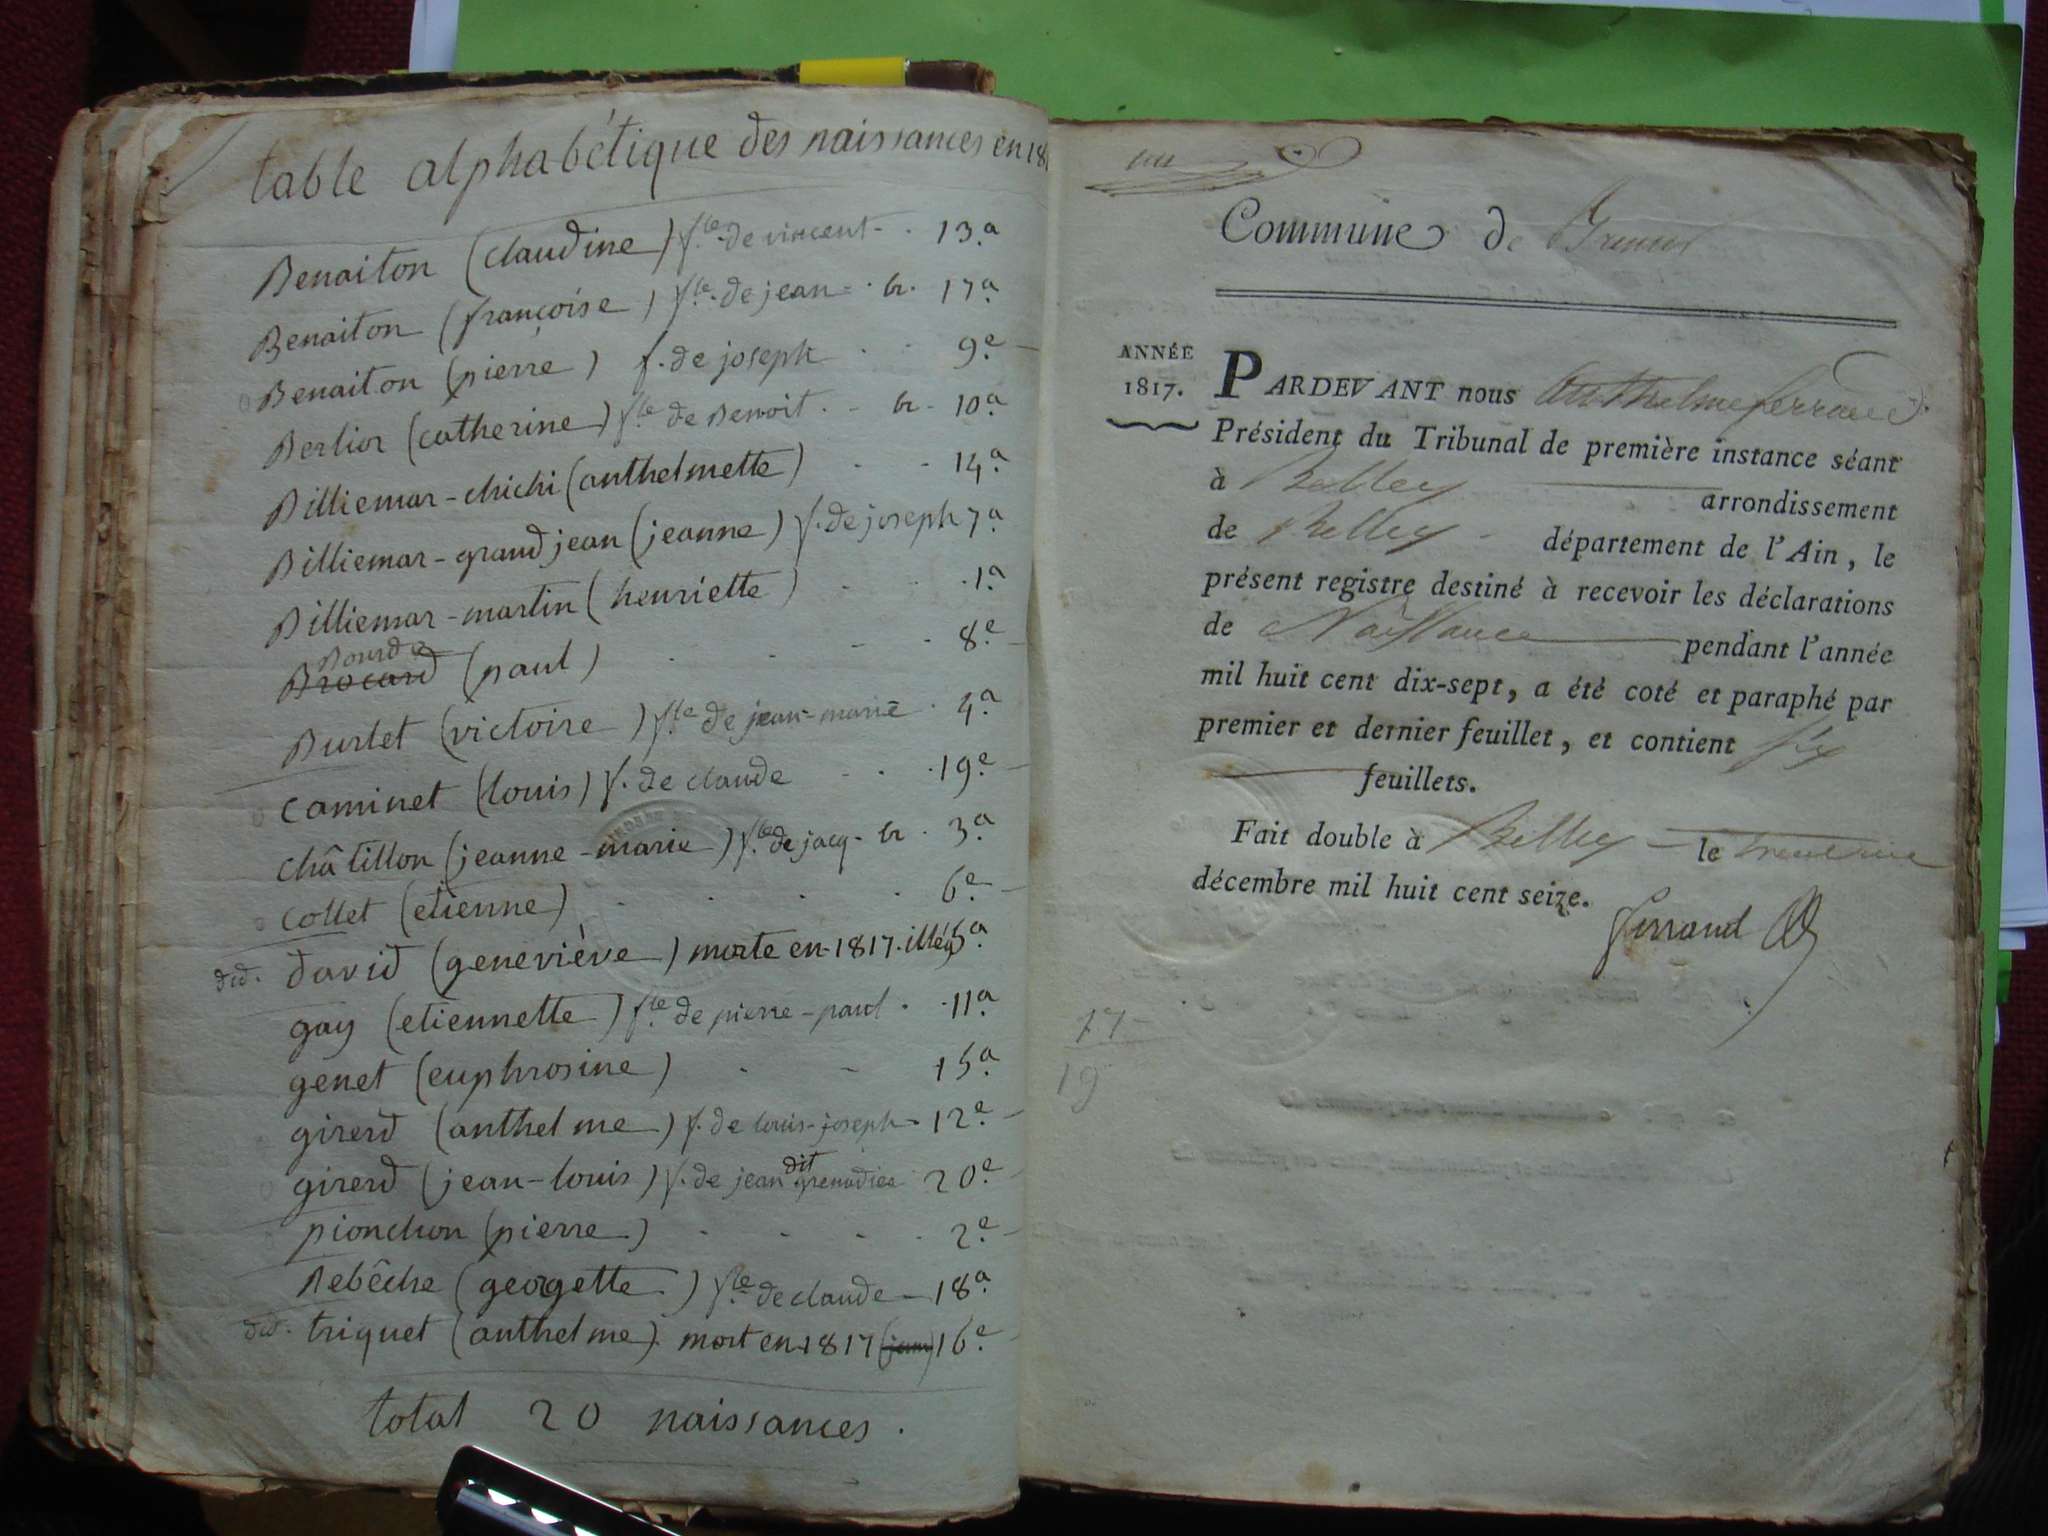 table alphabétique des naissances en 18
Benaiton (claudine) f.le de vincent - . 13.a
Benaiton (françoise) f.le de jean - . br. 17.a
Benaiton (pierre) f. de joseph . . 9.e
Berlior (catherine) f.le de Benoit . - br - 10.a
Billiemar - chichi (anthelmette) . - 14.a
Billiemar - grand jean (jeanne) f. de joseph 7.a
Billiemar - martin (henriette) - . 1.a
Bourde
Brocard (paul) . - - . 8.e
Burlet (victoire) f.le de jean-marie . 4.a
Caminet (louis) f. de claude . . 19.e
châtillon (jeanne - marie) f.le de jacq - br . 3.a
Collet (etienne) . . . . 6.e
dcd. david (geneviève) morte en 1817. illég 5.a
gay (etiennette) f.le de pierre - paul . 11.a
genet (euphrosine) - - 15.a
girerd (anthelme) f. de louis - joseph - 12.e
dit
girerd (jean-louis) f. de jean grenadier 20.e
pionchon (pierre) . - - . 2.e
Rebêche (georgette) f.le de claude - 18.a
dcd. triquet (anthelme). mort en 1817 16.e
total 20 naissances.
un
Commune de
ANNÉE
1817.
PARDEVANT nous Anthelme ferrand
Président du Tribunal de première instance séant
à Belley arrondissement
de Belley - département de l'Ain, le
présent registre destiné à recevoir les déclarations
de Naissance pendant l'année
mil huit cent dix-sept, a été coté et paraphé par
premier et dernier feuillet, et contient six
feuillets.
Fait double à Belley le trente un
décembre mil huit cent seize.
ferrand
17
19